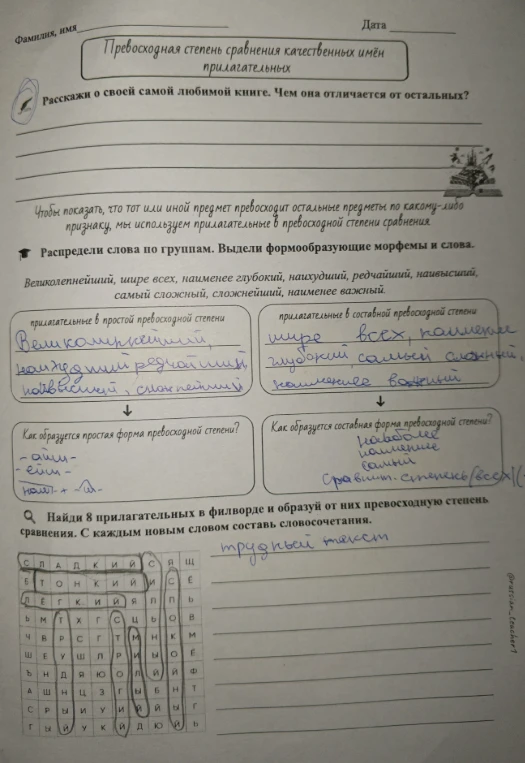 Фамилия, имя
Дата
Превосходная степень сравнения качественных имён
прилагательных
Расскажи о своей самой любимой книге. Чем она отличается от остальных?
Чтобы показать, что тот или иной предмет превосходит остальные предметы по какому-либо
признаку, мы используем прилагательные в превосходной степени сравнения
Распредели слова по группам. Выдели формообразующие морфемы и слова.
Великолепнейший, шире всех, наименее глубокий, наихудший, редчайший, наивысший,
самый сложный, сложнейший, наименее важный.
прилагательные в простой превосходной степени
Великолепнейший,
наихудший редчайший
наивысший, сложнейший
прилагательные в составной превосходной степени
шире всех, наименее
глубокий, самый сложный,
наименее важный
Как образуется простая форма превосходной степени?
-айш-
-ейш-
наи- + -ш-
Как образуется составная форма превосходной степени?
наиболее
наименее
самый
сравнит. степень/всех/(
Найди 8 прилагательных в филворде и образуй от них превосходную степень
сравнения. С каждым новым словом составь словосочетания.
трудный текст
С Л А Д К И Й С Я Щ
Б Т О Н К И Й И С Ё
Л Ё Г К И Й Я Л П Ь
Ь М Т Х Г С Ц Ь О В
Ч В Р С Г Т М Н К М
Ш Е У Ш Л Р И Ы О Ё
Ь Н Д Я Ю О Л Й Й Ф
А Ш Н Ц З Г Ы Б Н Т
С Р Ы И У И Й Й Ы Г
Т Ы Й У К Й Д Ю Й Ь
@russian_teacher7